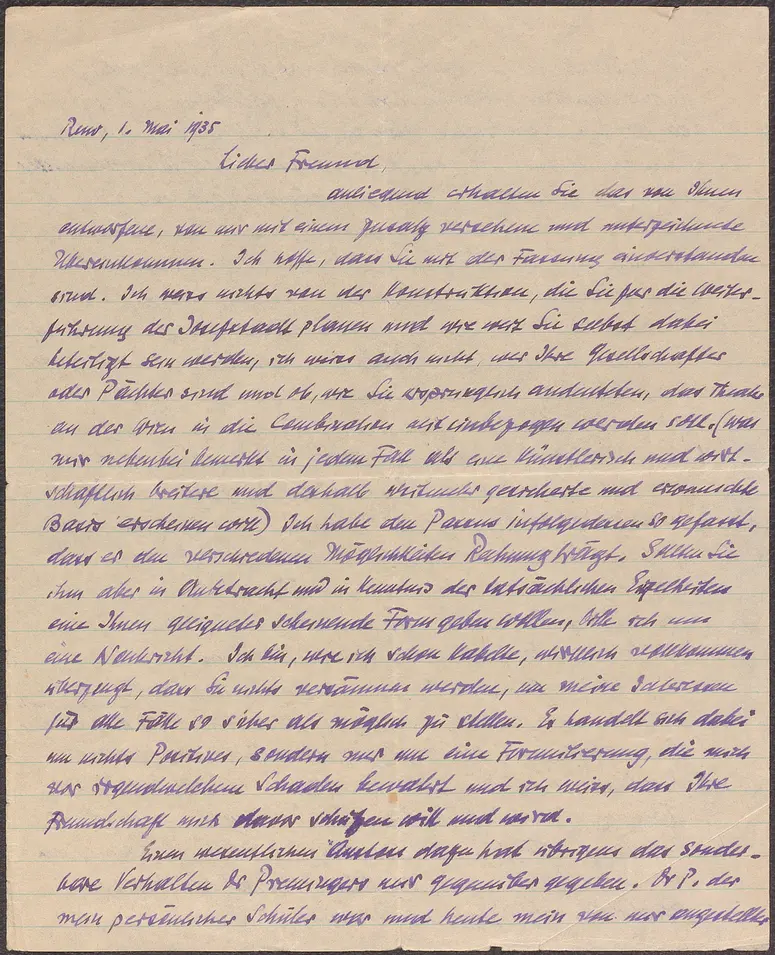 Reno, 1. Mai 1935
Lieber Freund,
anliegend erhalten Sie das von Ihnen
entworfene, von mir mit einem Zusatz versehene und unterzeichnete
Übereinkommen. Ich hoffe, dass Sie mit der Fassung einverstanden
sind. Ich weiss nichts von der Konstruktion, die Sie für die Weiter-
führung der Josefstadt planen und wie weit Sie selbst dabei
beteiligt sein werden, ich weiss auch nicht, wer Ihre Gesellschafter
oder Pächter sind und ob, wie Sie ursprünglich andeuteten, das Theater
an der Wien in die Combination mit einbezogen werden soll. (was
mir nebenbei bemerkt in jedem Fall als eine künstlerisch und wirt-
schaftlich breitere und deshalb weitmehr gesicherte und erwünschte
Basis erscheinen will) Ich habe den Passus infolgedessen so gefasst,
dass er den verschiedenen Möglichkeiten Rechnung trägt. Sollten Sie
ihm aber in Anbetracht und in Kenntnis der tatsächlichen Einzelheiten
eine Ihnen geeigneter scheinende Form geben wollen, bitte ich um
eine Nachricht. Ich bin, wie ich schon kabelte, wirklich vollkommen
überzeugt, dass Sie nichts versäumen werden, um meine Interessen
für alle Fälle so sicher als möglich zu stellen. Es handelt sich dabei
um nichts Positives, sondern nur um eine Formulierung, die mich
vor irgendwelchem Schaden bewahrt und ich weiss, dass Ihre
Freundschaft mich davor schützen will und wird.
Einen wesentlichen Anstoss dazu hat übrigens das sonder-
bare Verhalten Dr Premingers mir gegenüber gegeben. Dr P. der
mein persönlicher Schüler war und heute mein von mir angestellter